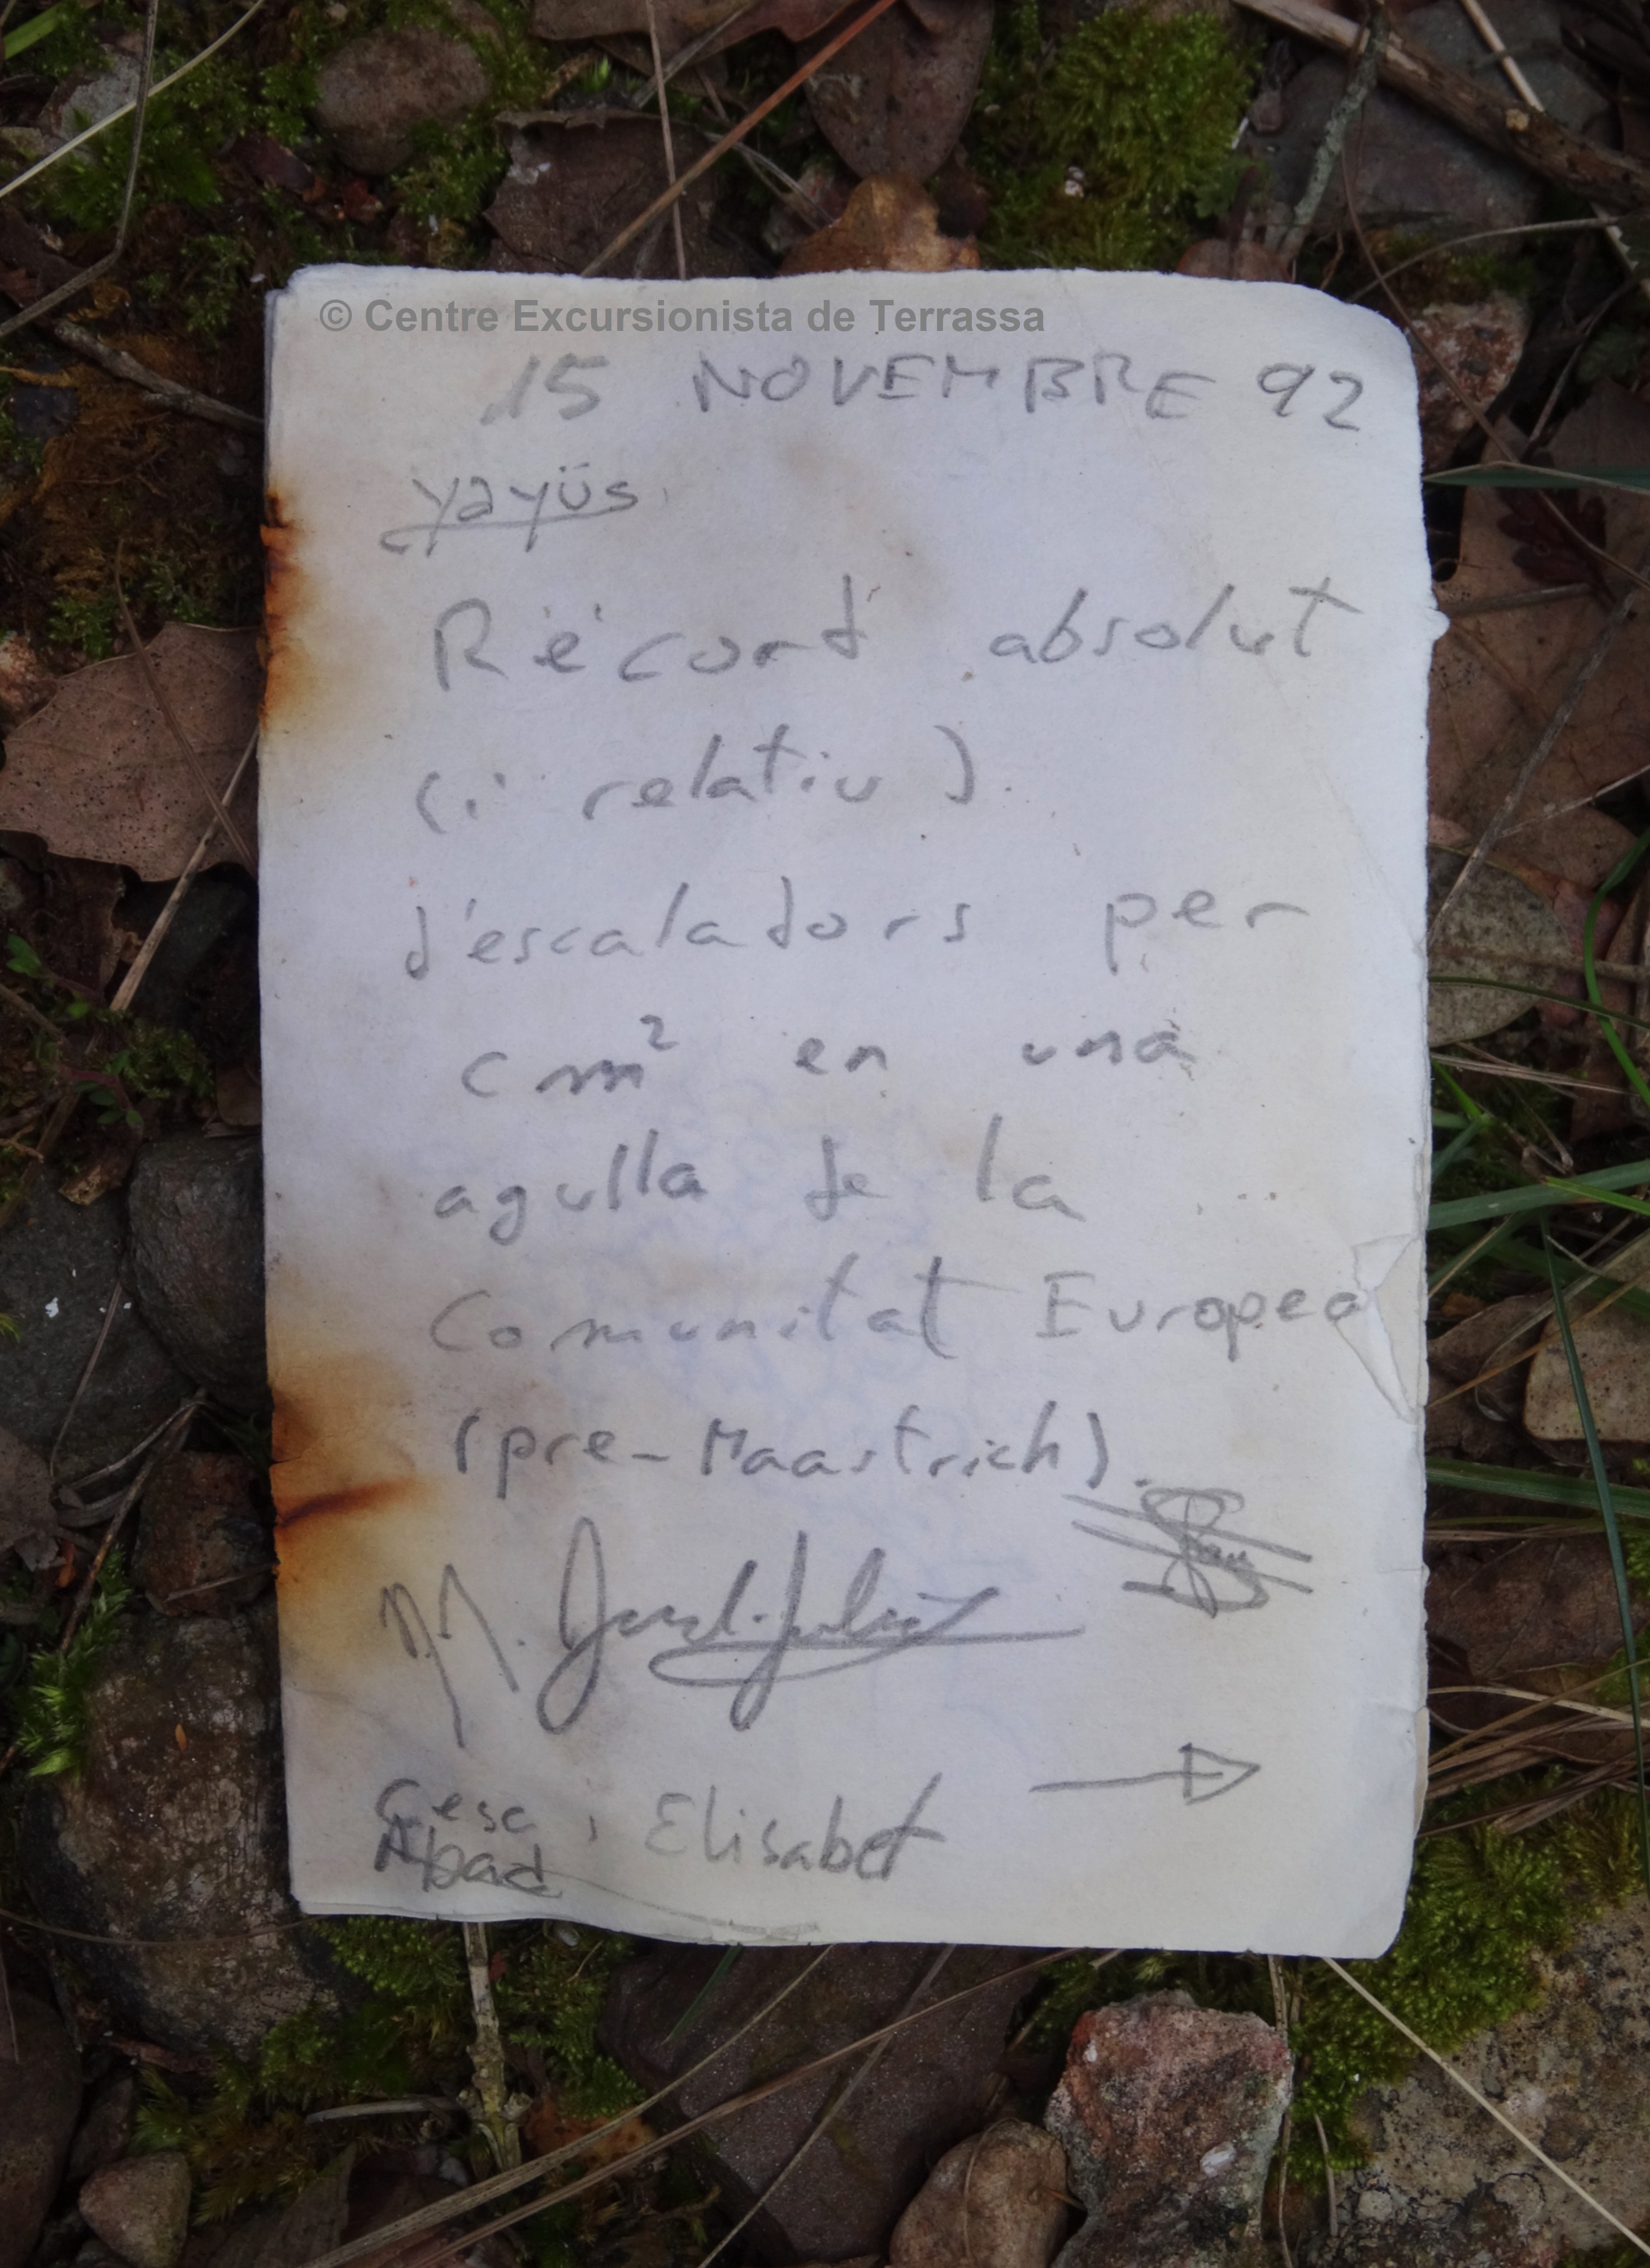 © Centre Excursionista de Terrassa
15 NOVEMBRE 92
yayüs
Récord absolut
(i relatiu)
d'escaladors per
cm² en una
agulla de la
Comunitat Europea
(pre-Maastrich).
M.
Cesc , Elisabet
Abad